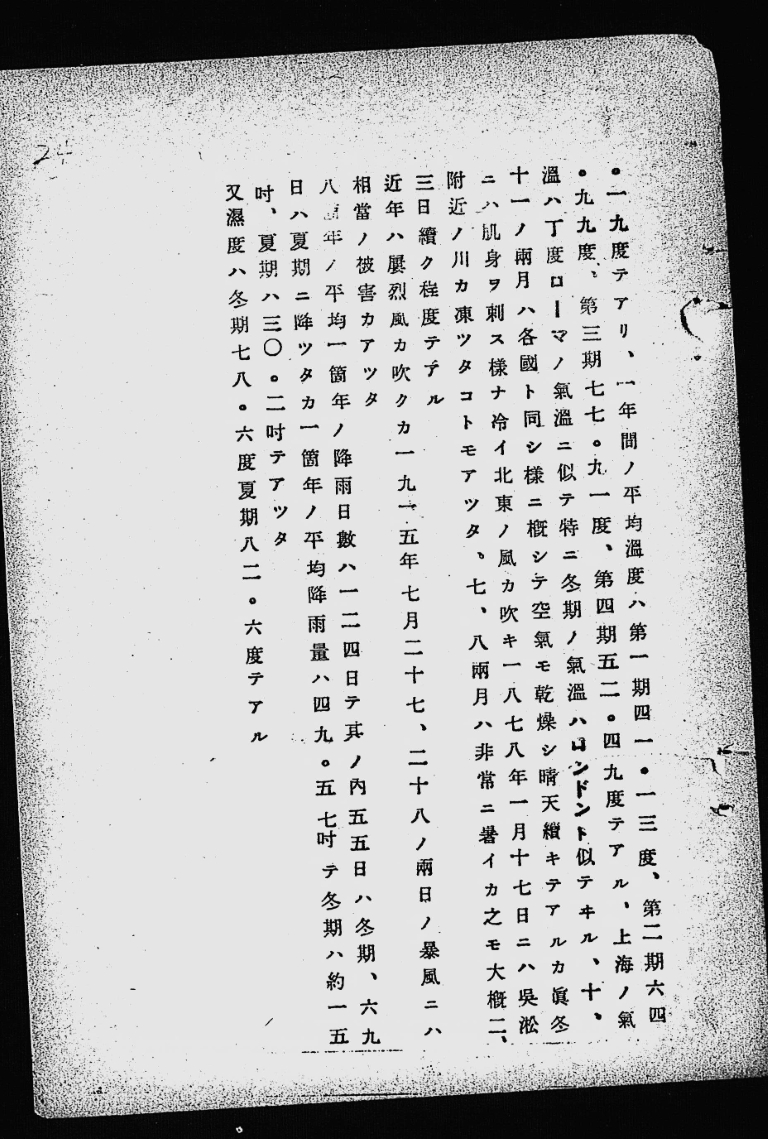 24
。一九度テアリ、一年間ノ平均溫度ハ第一期四一。一三度、第二期六四
。九九度、第三期七七。九一度、第四期五二。四九度テアル、上海ノ氣
溫ハ丁度ローマノ氣溫ニ似テ特ニ冬期ノ氣溫ハロンドント似テヰル、十、
十一ノ兩月ハ各國ト同シ樣ニ槪シテ空氣モ乾燥シ晴天續キテアルカ眞冬
ニハ肌身ヲ刺ス樣ナ冷イ北東ノ風カ吹キ一八七八年一月十七日ニハ吳淞
附近ノ川カ凍ツタコトモアツタ。七、八兩月ハ非常ニ暑イカ之モ大槪二、
三日續ク程度テアル
近年ハ屢烈風カ吹クカ一九一五年七月二十七、二十八ノ兩日ノ暴風ニハ
相當ノ被害カアツタ
八 年ノ平均一箇年ノ降雨日數ハ一二四日テ其ノ內五五日ハ冬期、六九
日ハ夏期ニ降ツタカ一箇年ノ平均降雨量ハ四九。五七吋テ冬期ハ約一五
吋、夏期ハ三〇。二吋テアツタ
又濕度ハ冬期七八。六度夏期八二。六度テアル